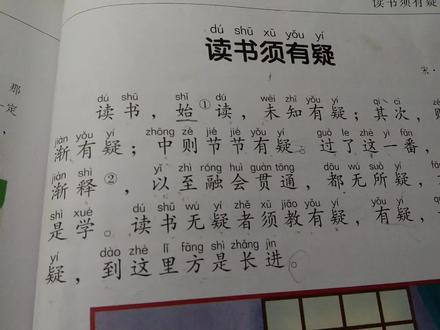 读书须有疑
dú shū xū yǒu yí
读书须有疑
宋·
那
dú shū shǐ wèi zhī yǒu yí qí cì
读书，始①读，未知有疑；其次，
一定
jiàn yǒu yí zhōng zé jié jié yǒu yí guò le zhè yì fān
渐有疑；中则节节有疑。过了这一番，
jiàn shì yǐ zhì róng huì guàn tōng dōu wú suǒ yí
渐释②，以至融会贯通，都无所疑，
shì xué dú shū wú yí zhě xū jiào yǒu yí yǒu yí
是学。读书无疑者须教有疑，有疑，
yí dào zhè lǐ fāng shì zhǎng jìn
疑，到这里方是长进。